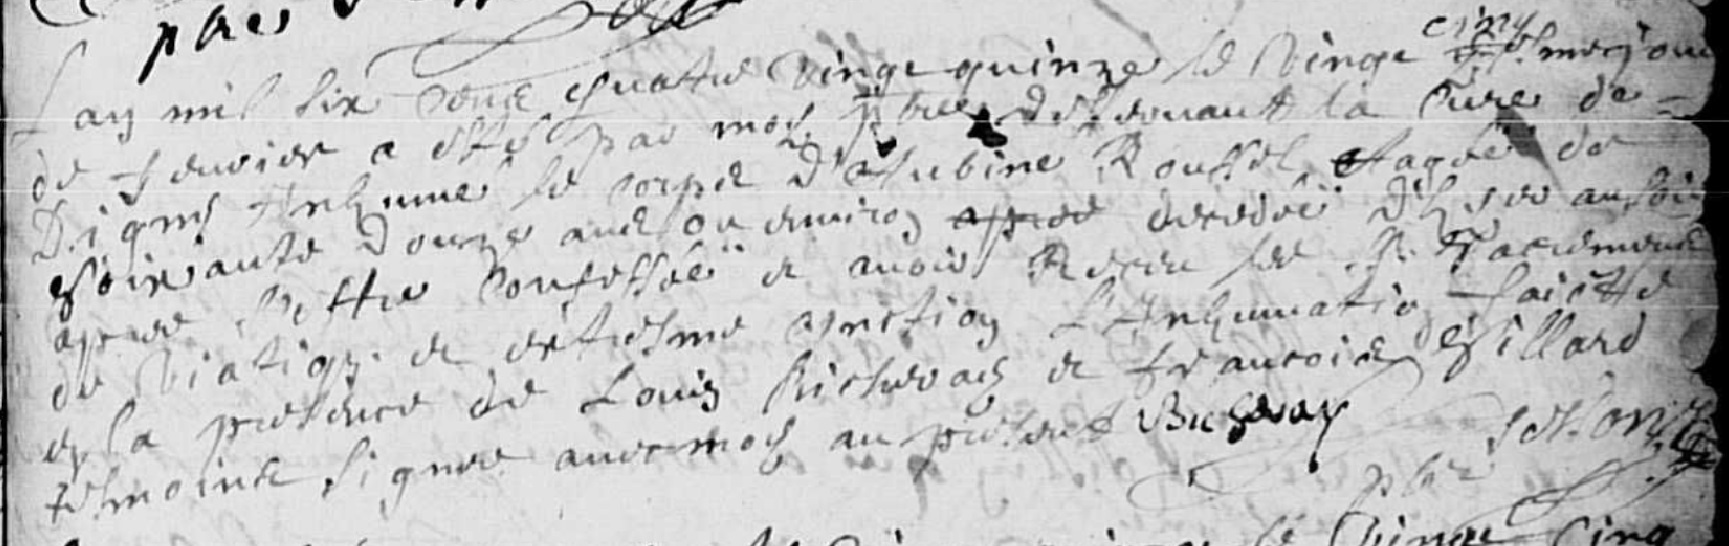 pbre
L'an mil six cent quatre vingt quinze le vingt cinq iesme jour
de fevrier a esté par moy pbre desservant la cure de
Digny Inhumé le corps d'Aubine Roussel aagée de
soixante douze ans ou environ decedée d'hyer au soir
apres s'estre confessée et avoir Receu les St. Sacremens
de viatiq. et extresme onction L'Inhumatio faicte
en la presence de Louis et francois Villard
tesmoins signés avec moy au present
pbre
le vingt cinq